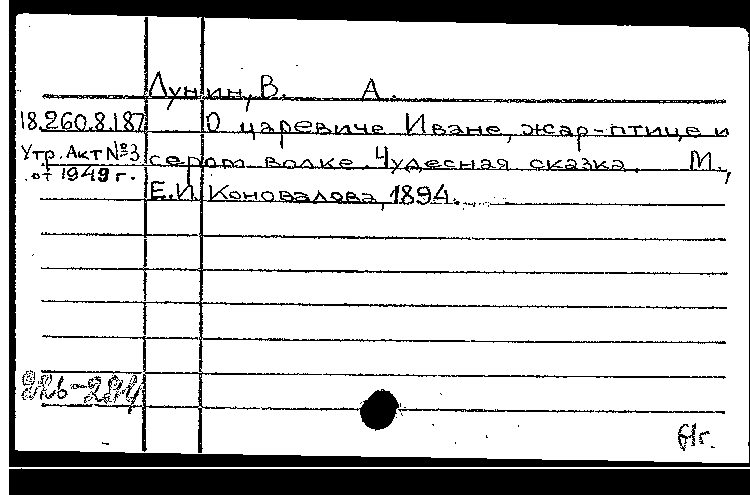 Лунин, В. А.
18.260.8.187 О царевиче Иване, жар-птице и
Утр. Акт №3 сером волке. Чудесная сказка. М.,
от 1949 г.
Е.И. Коновалова, 1894.
61г.